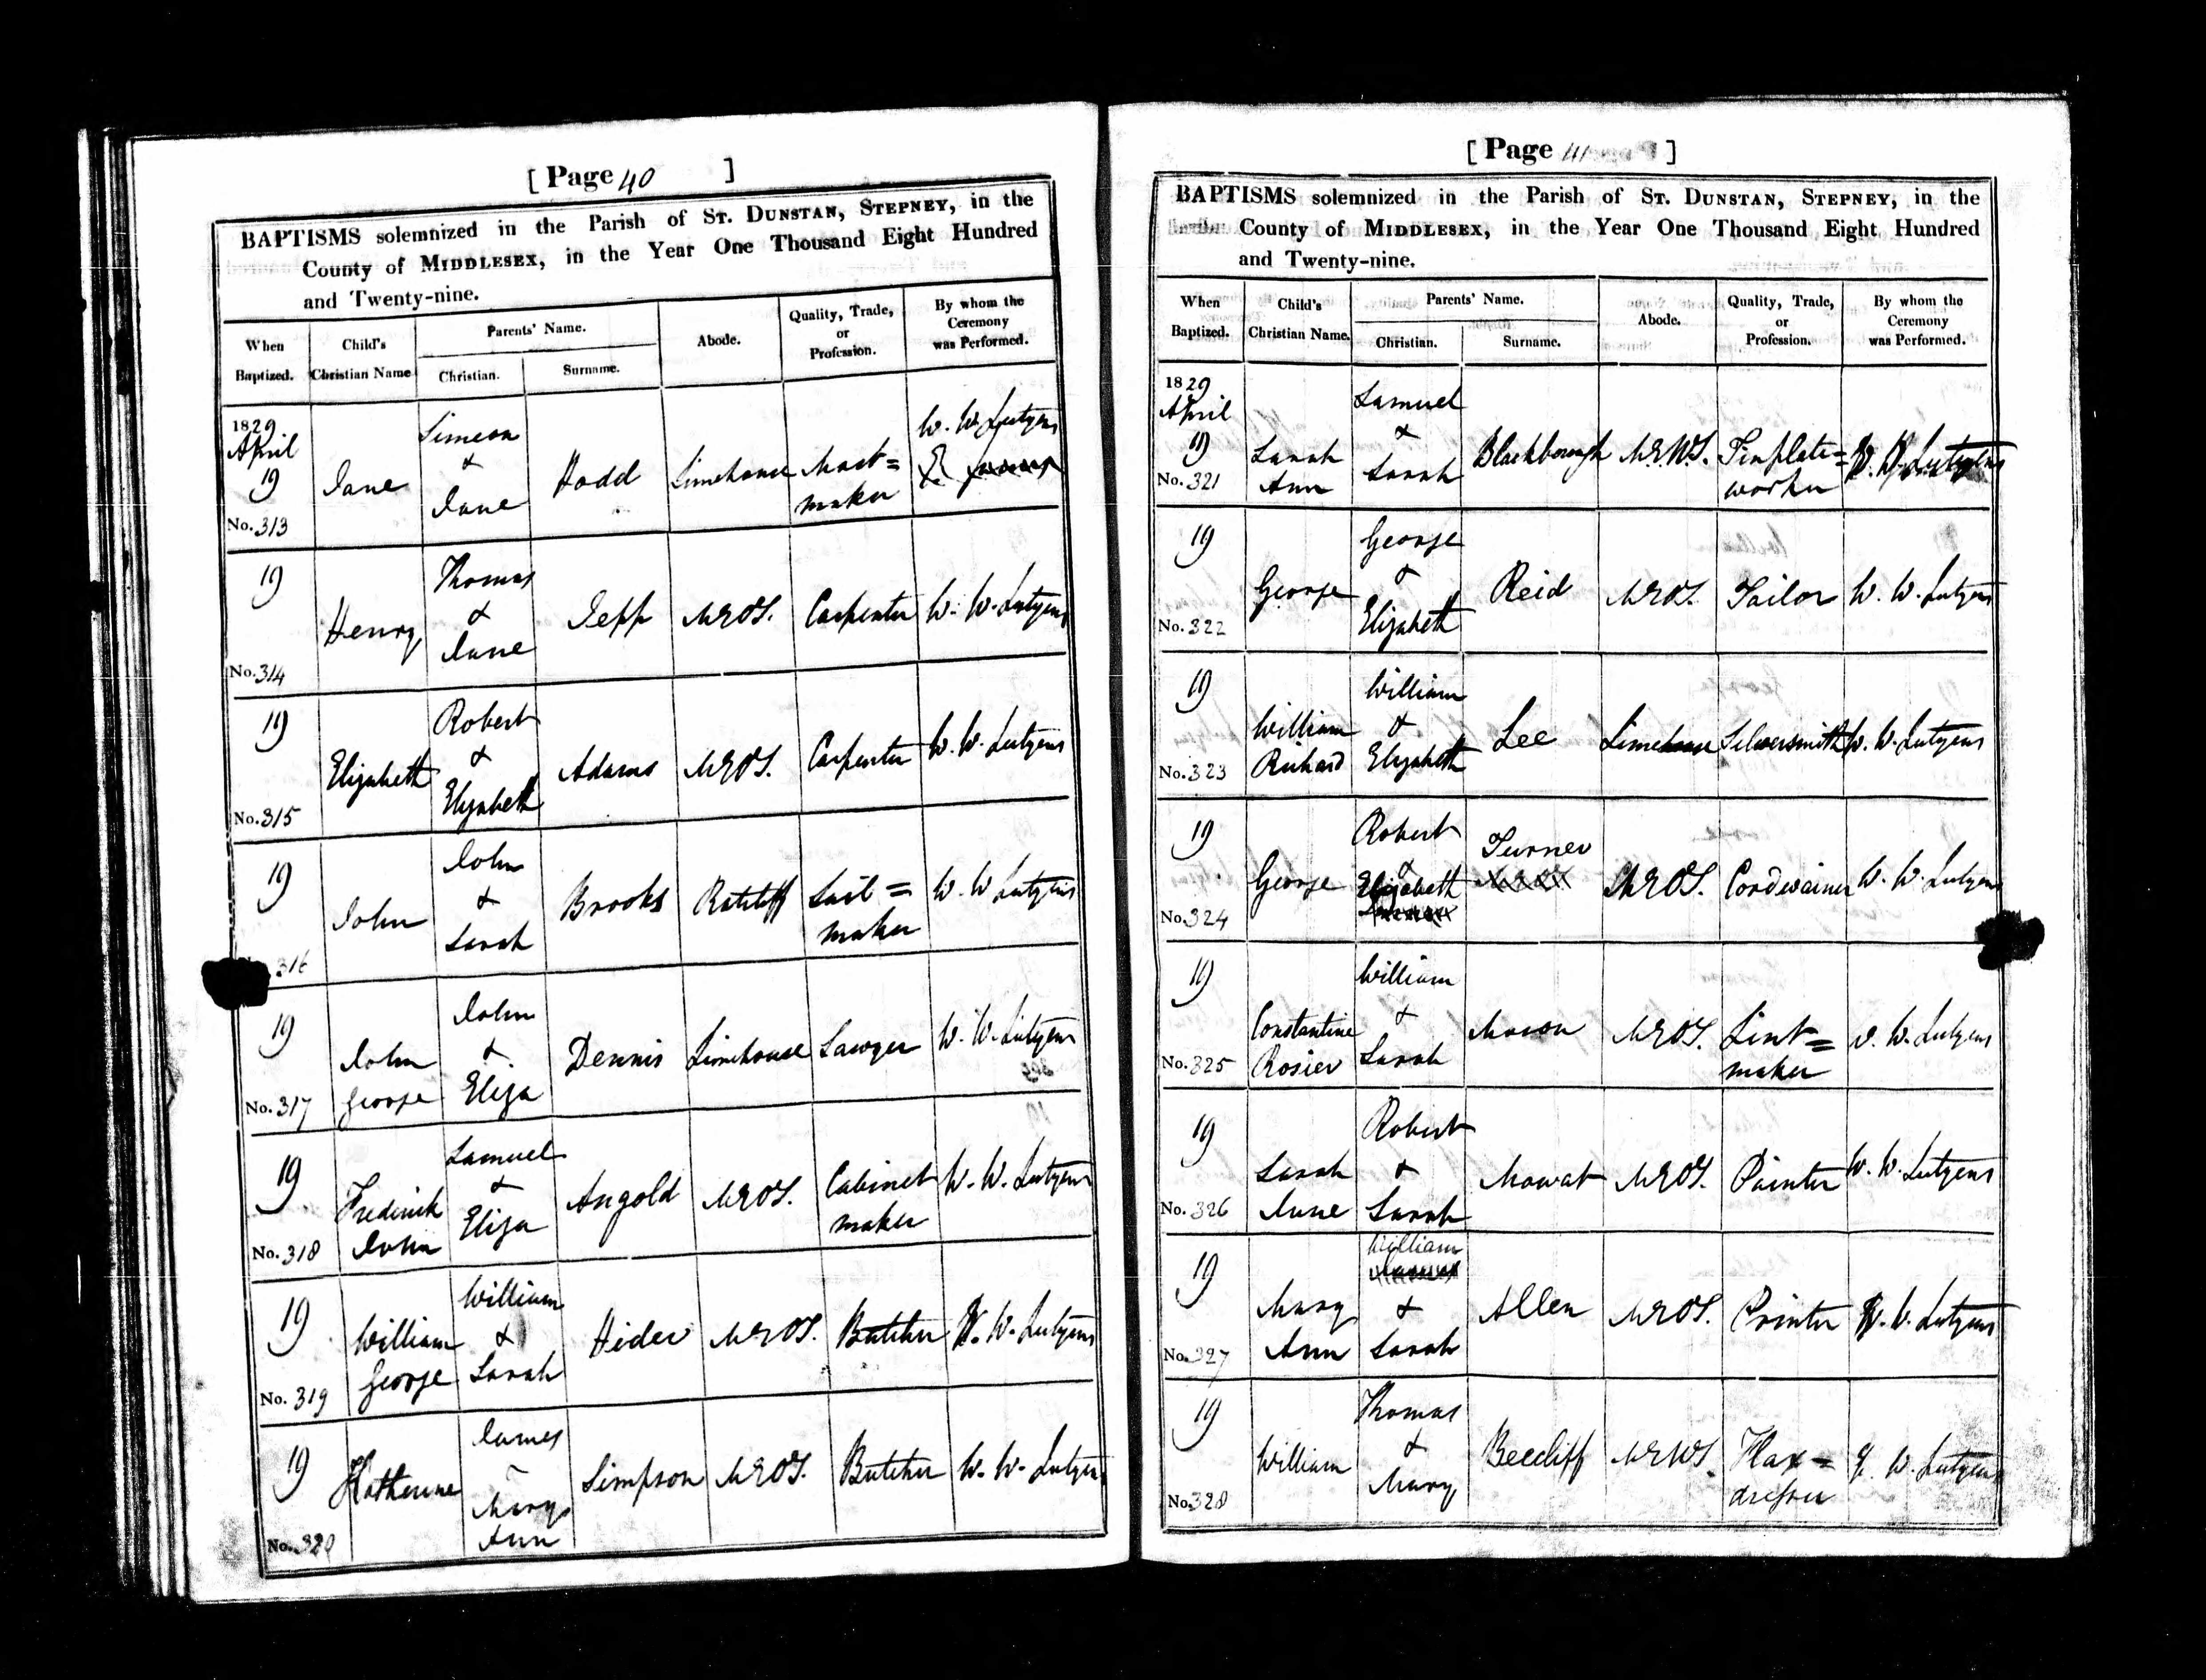 [ Page 40 ]
BAPTISMS solemnized in the Parish of ST. DUNSTAN, STEPNEY, in the
County of MIDDLESEX, in the Year One Thousand Eight Hundred
and Twenty-nine.
When Baptized. Child's Christian Name Parents' Name. Christian. Surname. Abode. Quality, Trade, or Profession. By whom the Ceremony was Performed.
1829 April 19 No. 313 Jane Simeon & Jane Hodd Limehouse Mast=maker W. W. Lutyens
19 No. 314 Henry Thomas & Jane Jepp MEOT. Carpenter W. W. Lutyens
19 No. 315 Elizabeth Robert & Elizabeth Adams MEOT. Carpenter W. W. Lutyens
19 316 John John & Sarah Brooks Ratcliff Sail=maker W. W Lutyens
19 No. 317 John George John & Eliza Dennis Limehouse Sawyer W. W. Lutyens
19 No. 318 Frederick John Samuel & Eliza Angold MEOT. Cabinet maker W. W. Lutyens
19 No. 319 William George William & Sarah Hider MEOT. Butcher W. W. Lutyens
19 No. 320 Katherine James & Mary Ann Simpson MEOT. Butcher W. W. Lutyens
[ Page 41 ]
BAPTISMS solemnized in the Parish of ST. DUNSTAN, STEPNEY, in the
County of MIDDLESEX, in the Year One Thousand Eight Hundred
and Twenty-nine.
When Baptized. Child's Christian Name. Parents' Name. Christian. Surname. Abode. Quality, Trade, or Profession. By whom the Ceremony was Performed.
1829 April 19 No. 321 Sarah Ann Samuel & Sarah Blackborough M.E.W.T. Tinplate=worker W. W. Lutyens
19 No. 322 George George & Elizabeth Reid MEOT. Tailor W. W. Lutyens
19 No. 323 William Richard William & Elizabeth Lee Limehouse Silversmith W. W. Lutyens
19 No. 324 George Robert & Elizabeth Turner MEOT. Cordwainer W. W. Lutyens
19 No. 325 Constantine Rosier William & Sarah Mason MEOT. Lint=maker W. W. Lutyens
19 No. 326 Sarah Jane Robert & Sarah Mowat MEOT. Painter W. W. Lutyens
19 No. 327 Mary Ann William & Sarah Allen MEOT. Printer W. W. Lutyens
19 No. 328 William Thomas & Mary Beecliff MEWT. Flax=dresser W. W. Lutyens